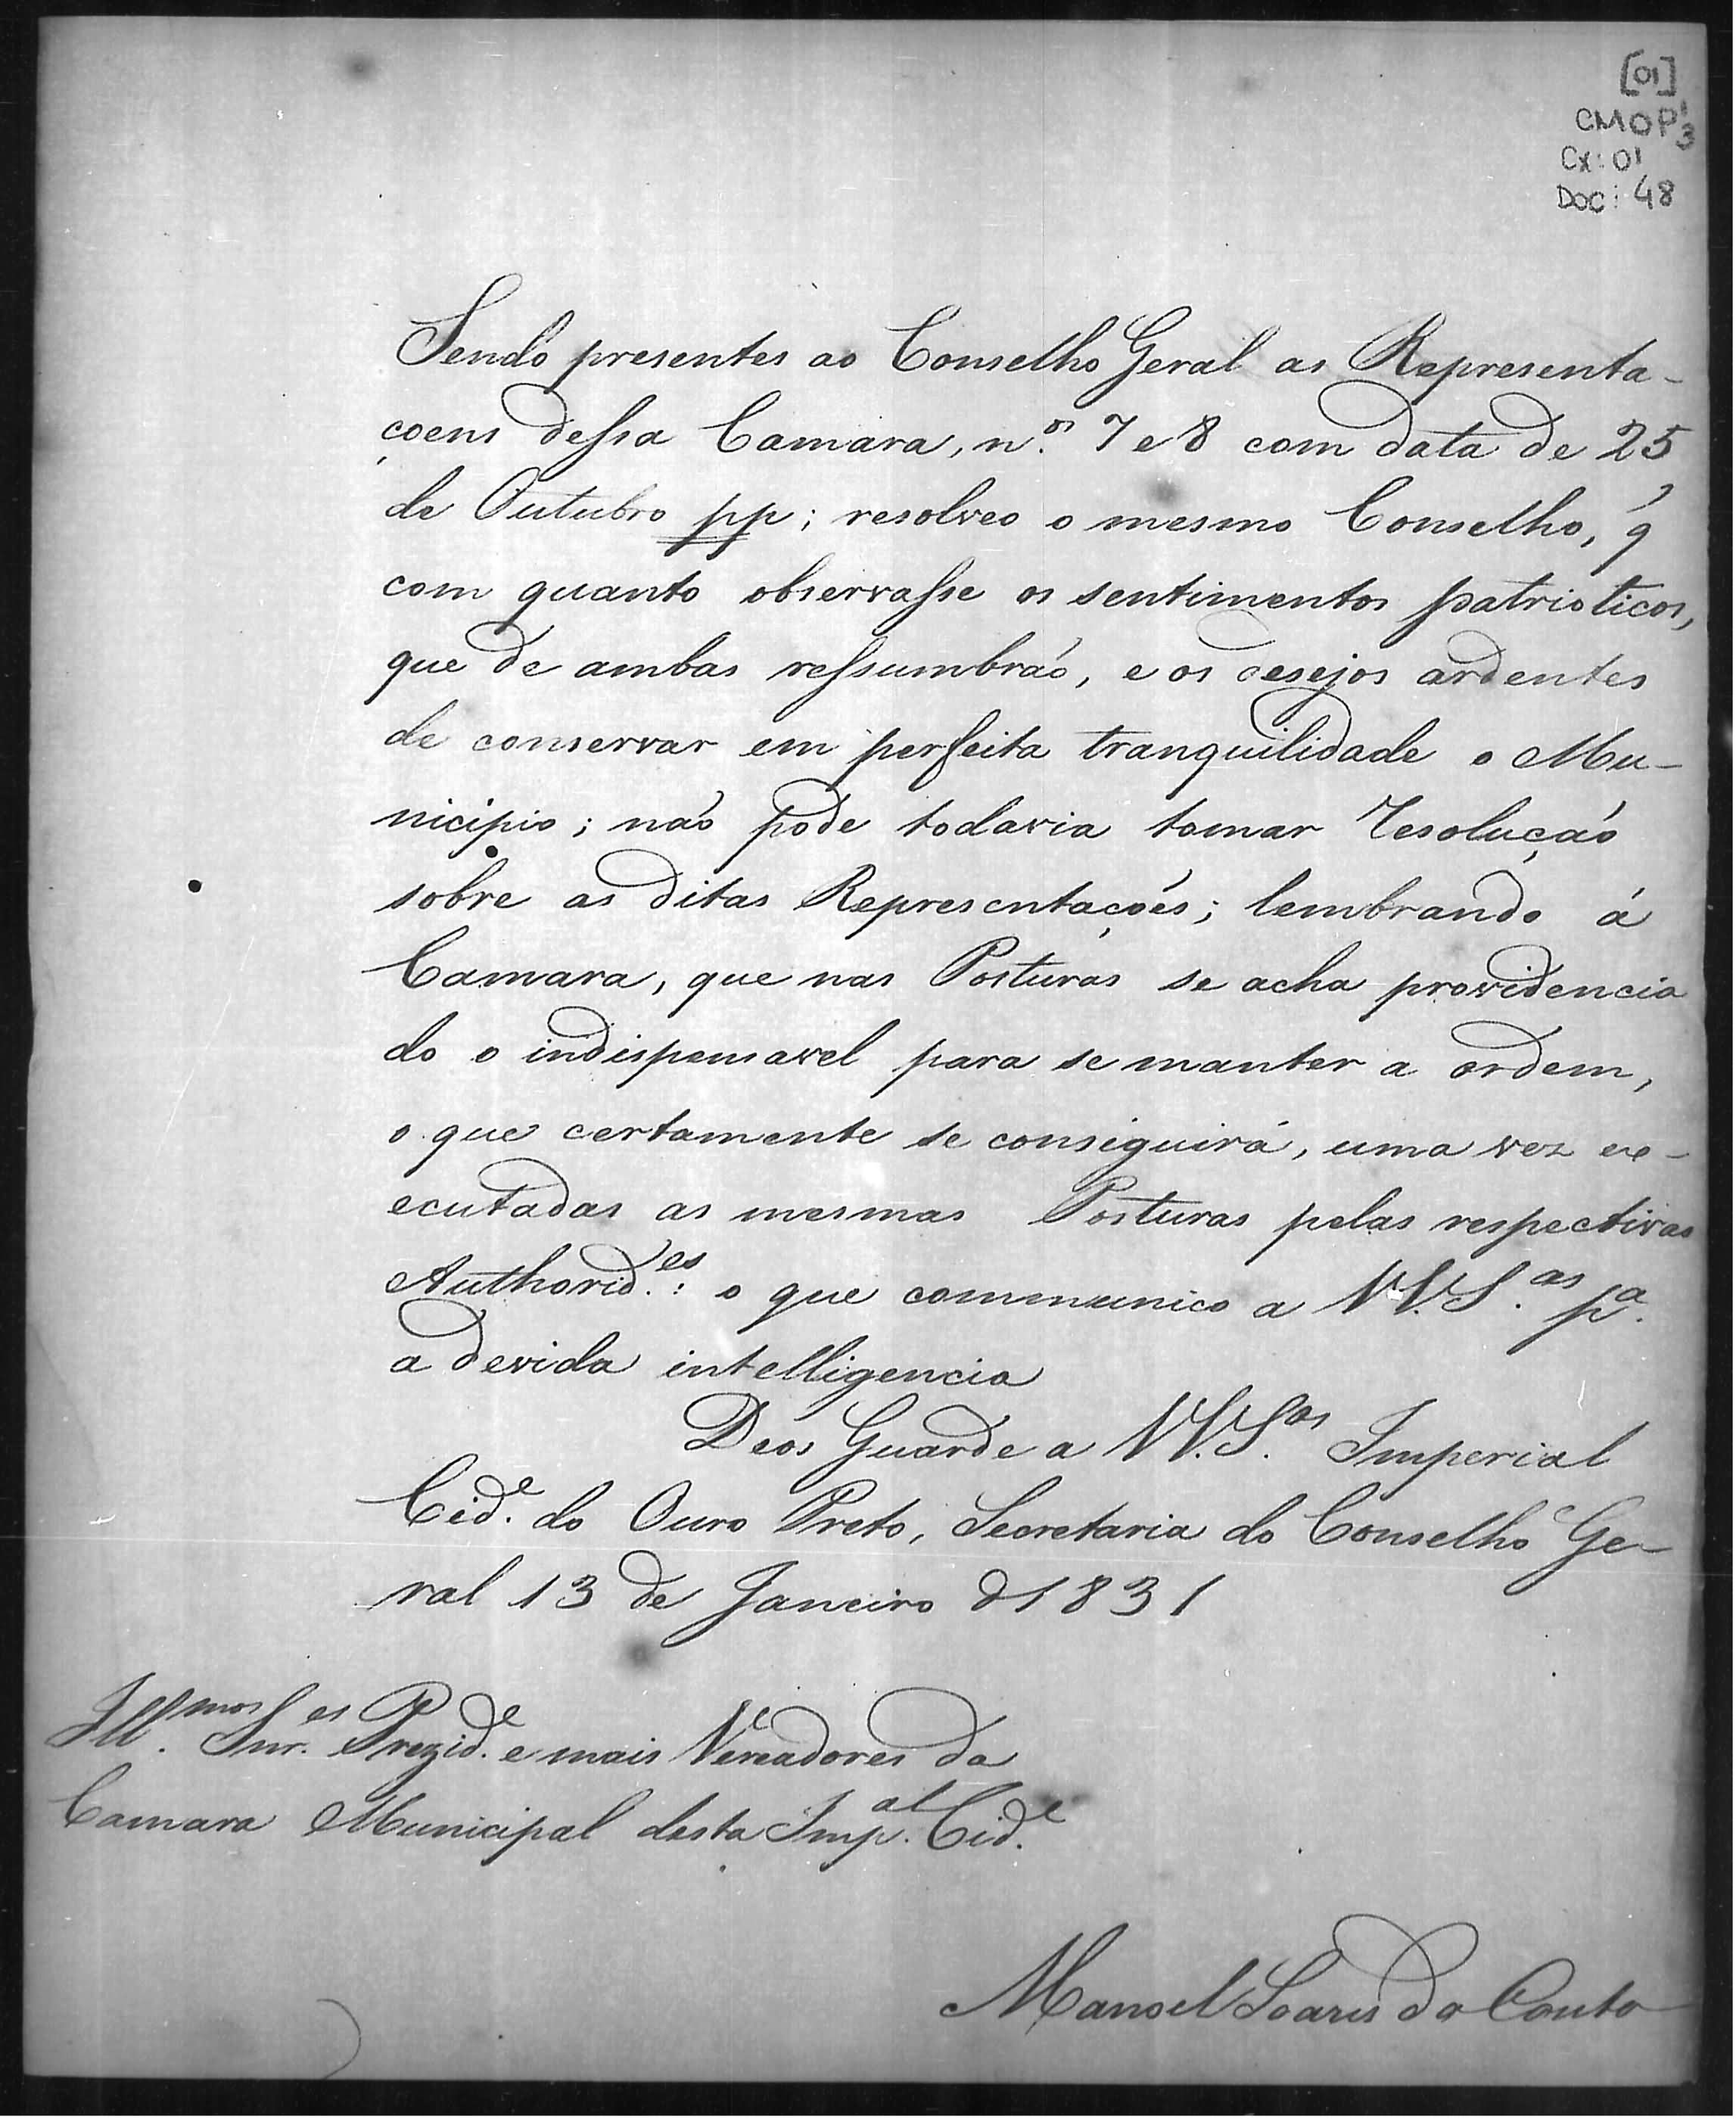 [01]
CMOP 1/3
Cx: 01
Doc: 48
Sendo presentes ao Conselho Geral as Representa-
çoens dessa Camara, n.os 7 e 8 com data de 25
de Outubro pp; resolveo o mesmo Conselho, q̃
com quanto observasse os sentimentos patrioticos,
que de ambas ressumbrão, e os desejos ardentes
de conservar em perfeita tranquilidade o Mu-
nicipio; não pode todavia tomar Resolução
sobre as ditas Representações; lembrando á
Camara, que nas Posturas se acha providencia
do o indispensavel para se manter a ordem,
o que certamente se conseguirá, uma vez ex-
ecutadas as mesmas Posturas pelas respectivas
Authorid.es: o que communico a VV.S.as p.a
a devida intelligencia
Deos Guarde a VV.S.as Imperial
Cid.e do Ouro Preto, Secretaria do Conselho Ge-
ral 13 de Janeiro d 1831
Ill.mos Snr.es Prezid.e e mais Vereadores da
Camara Municipal desta Imp.al Cid.e
Manoel Soares do Couto